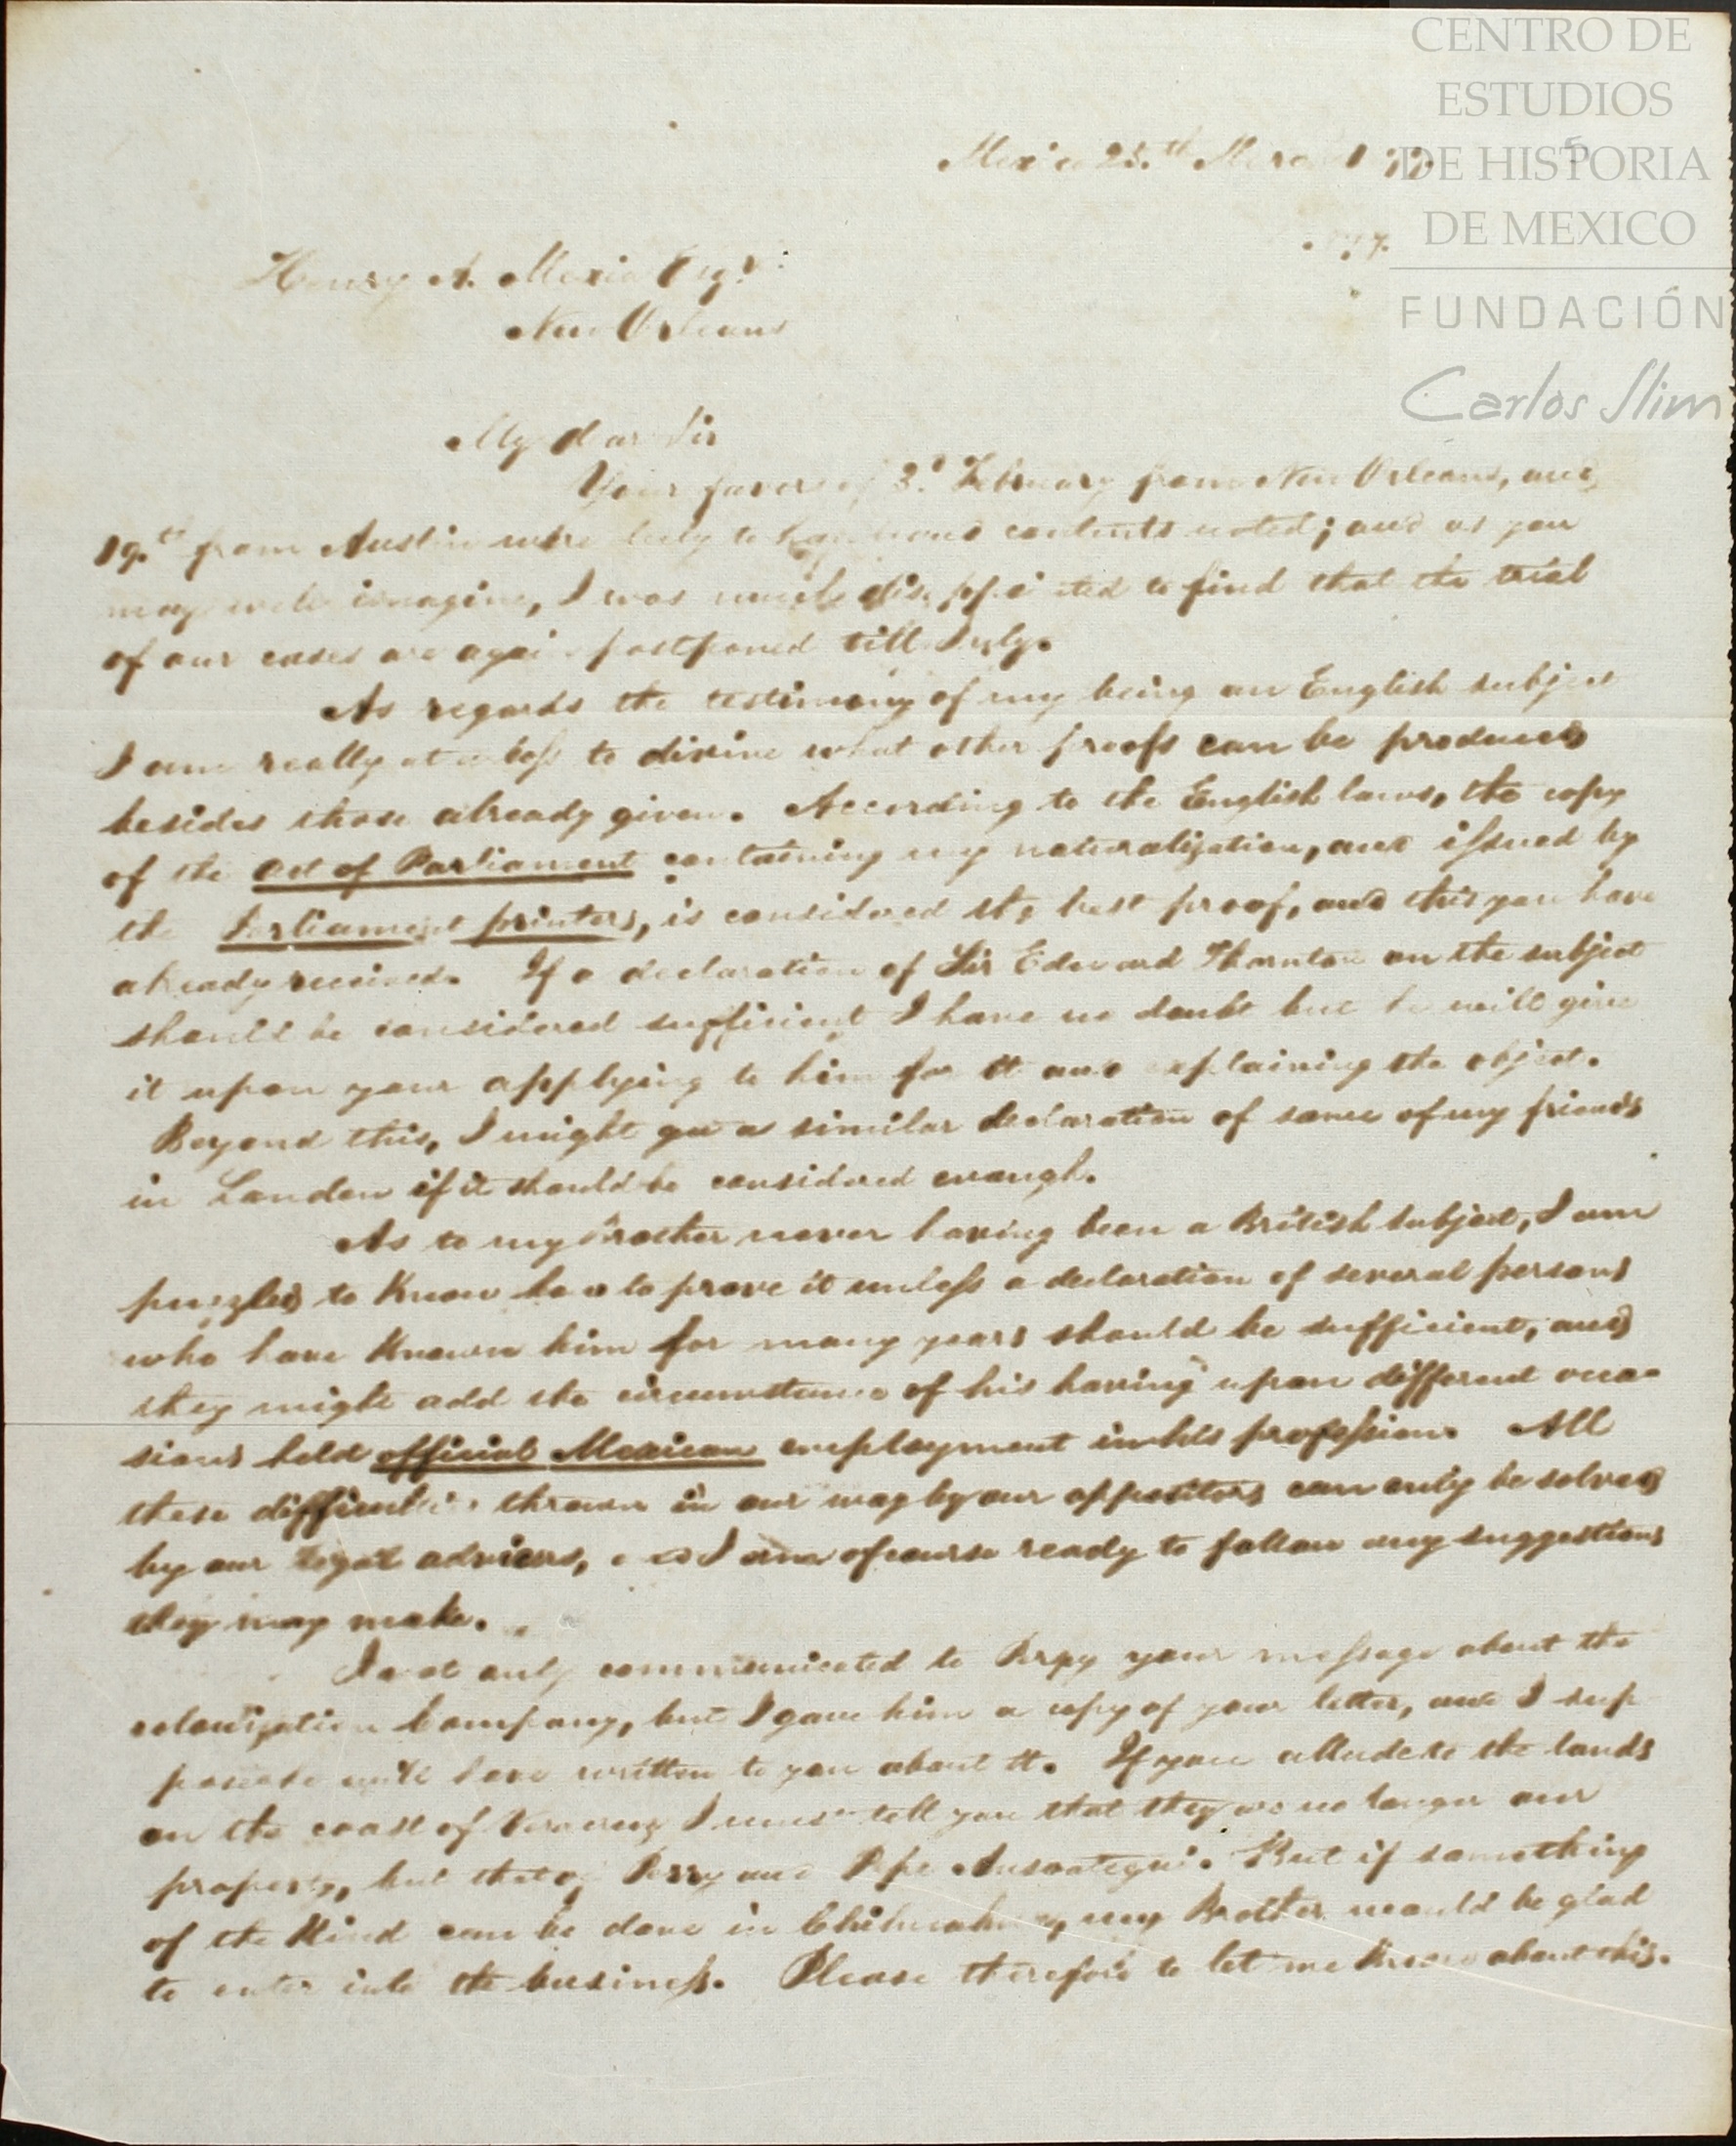 CENTRO DE
ESTUDIOS
DE HISTORIA
DE MEXICO
FUNDACIÓN
Carlos Slim
Mexico 25.th March
Henry A. Mexia Esqr.
New Orleans
My dear Sir
Your favors of 3.d February from New Orleans, and
19.th from Austin were duly to hand and contents noted; and as you
may well imagine, I was much disappointed to find that the trial
of our cases are again postponed till July.
As regards the testimony of my being an English subject
I am really at a loss to divine what other proofs can be produced
besides those already given. According to the English laws, the copy
of the Act of Parliament containing my naturalization, and issued by
the Parliament printers, is considered the best proof, and this you have
already received. If a declaration of Sir Edward Thornton on the subject
should be considered sufficient I have no doubt but he will give
it upon your applying to him for it and explaining the object.
Beyond this, I might get a similar declaration of some of my friends
in London if it should be considered enough.
As to my Brother never having been a British subject, I am
puzzled to Know how to prove it unless a declaration of several persons
who have Known him for many years should be sufficient, and
they might add the circumstance of his having upon different occa-
sions held official Mexican employment in his profession. All
these difficulties thrown in our way by our oppositors can only be solved
by our legal advisers, and I am of course ready to follow any suggestions
they may make.
I not only communicated to Perry your message about the
colonization Company, but I gave him a copy of your letter, and I sup
pose he will have written to you about it. If you allude to the lands
on the coast of Veracruz I must tell you that they are no longer our
property, but that of Perry and Pepe Ansoategui. But if something
of the Kind can be done in Chihuahua, my Brother would be glad
to enter into the business. Please therefore to let me Know about this.